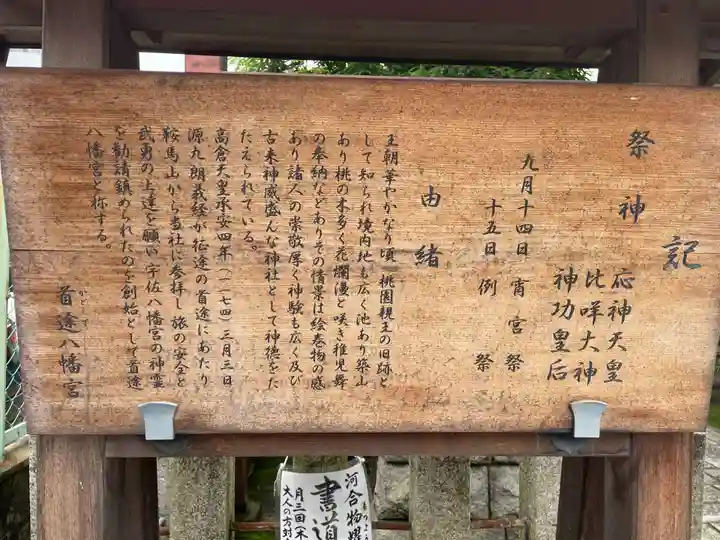 記
祭神
応神天皇
比咩大神
神功皇后
九月十四日 宵宮祭
十五日 例祭
由緒
王朝華やかなり頃、桃園親王の旧跡と
して知られ境内地も広く池あり築山
あり桃の木多く花爛漫と咲き稚児舞
の奉納などありその情景は絵巻物の感
あり諸人の崇敬厚く神験も広く及び
古来神威盛んな神社として神徳をた
たえられている。
高倉天皇承安四年(一一七四)三月三日
源九朗義経が征途の首途にあたり
鞍馬山から当社に参拝し旅の安全と
武勇の上達を願い宇佐八幡宮の神霊
を勧請鎮められたのを創始として首途
八幡宮と称する。
かどで
首途八幡宮
河合物
書道
月三回(木
大人の方対